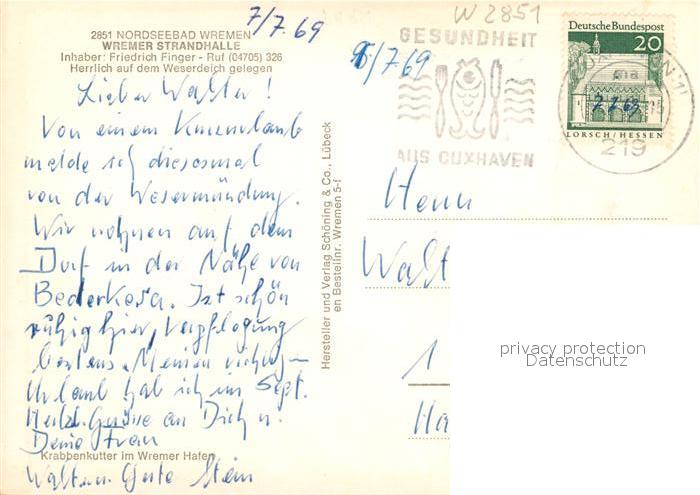 7/7.69
2851 NORDSEEBAD WREMEN
WREMER STRANDHALLE
Inhaber: Friedrich Finger - Ruf (04705) 326
Herrlich auf dem Weserdeich gelegen
Lieber Walter!
Von einem Kurzurlaub
melde ich diesesmal
von der Wesermündung.
Wir wohnen auf dem
Dorf in der Nähe von
Bederkesa. Ist schön
ruhig hier, Verpflegung
bestens. Meinen richtigen
Urlaub hab ich im Sept.
Herzl. Grüsse an Dich u.
Deine Frau
Krabbenkutter im Wremer Hafen
Walter u. Gerte Stein
Hersteller und Verlag Schöning & Co., Lübeck
en Bestellnr. Wremen 5-f
W 2851
/7.69
GESUNDHEIT
AUS CUXHAVEN
Deutsche Bundespost
20
LORSCH/HESSEN
219
Herrn
Walt
1
Ha
privacy protection
Datenschutz